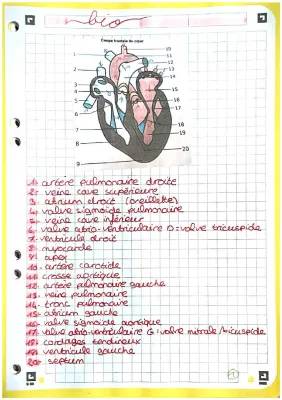 bio
Coupe frontale du cœur
1
2
3
4
5
6
7
8
9
10
11
12
13
14
15
16
17
18
19
20
1- artère pulmonaire droite
2- veine cave supérieure
3- atrium droit (oreillette)
4- valve sigmoïde pulmonaire
5- veine cave inférieur
6- valve atrio-ventriculaire D = valve tricuspide
7- ventricule droit
8- myocarde
9- apex
10- artère carotide
11- crosse aortique
12- artère pulmonaire gauche
13- veine pulmonaire
14- tronc pulmonaire
15- atrium gauche
16- valve sigmoïde aortique
17- valve atrio-ventriculaire G = valve mitrale/bicuspide
18- cordages tendineux
19- ventricule gauche
20- septum
1